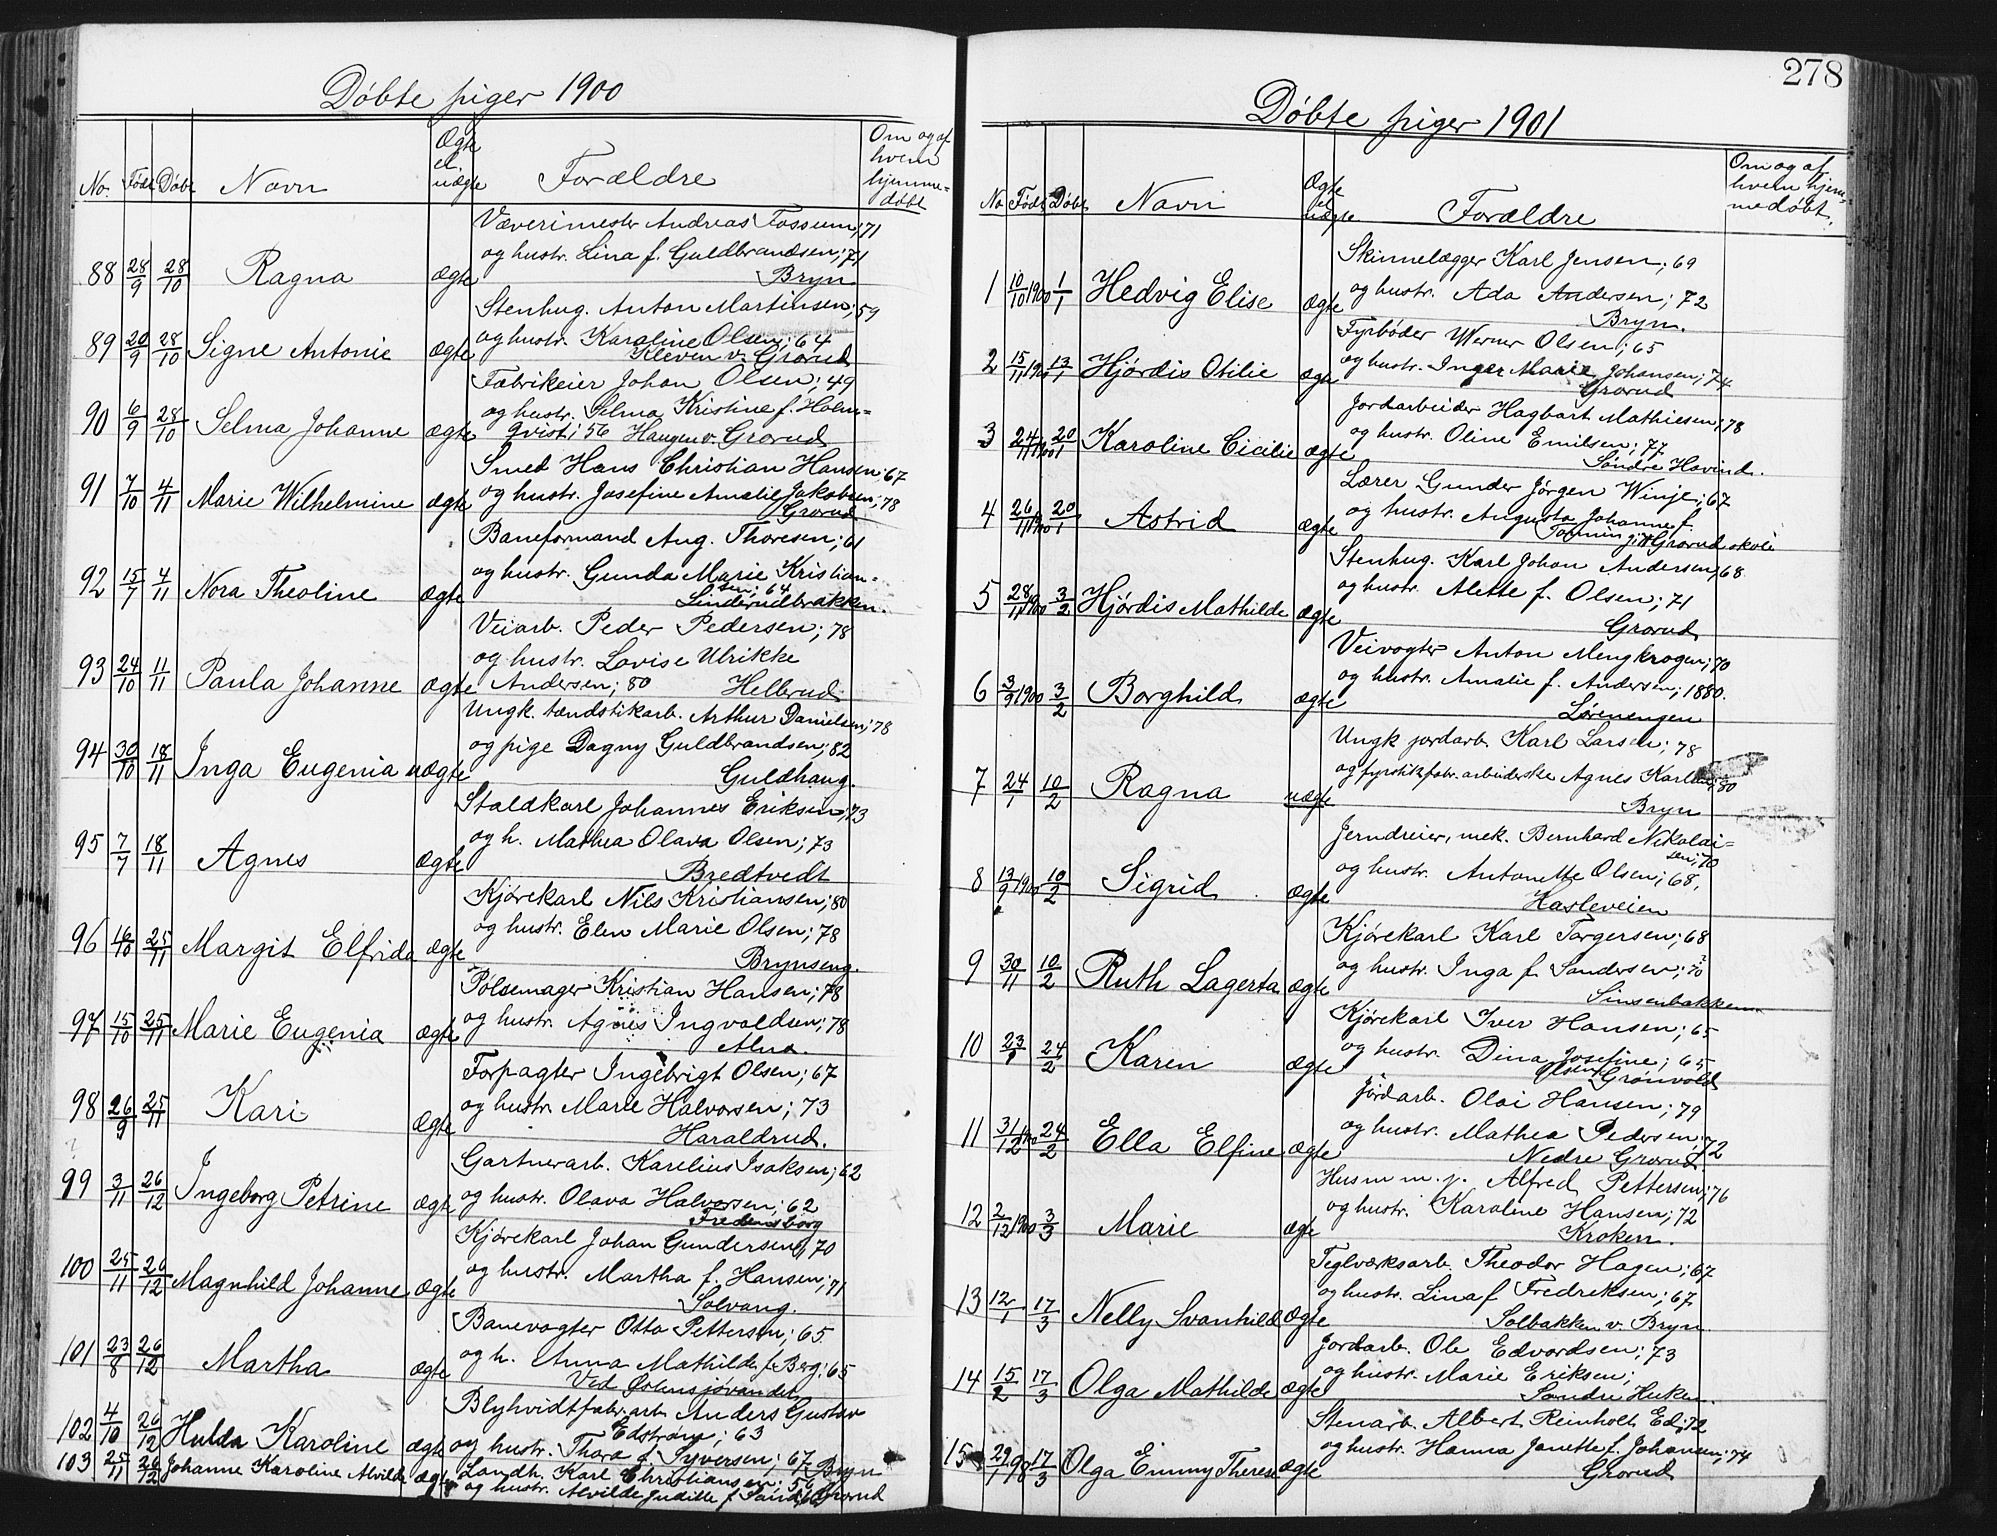 Døbte piger 1900
No. Født Døbt Navn Ægte el. uægte Forældre Om og af hvem hjemme=døbt
Væverimester Andreas Fossum; 71
88 28/9 28/10 Ragna ægte og hustr. Lina f. Guldbrandsen; 71
Bryn
Stenhug. Anton Martinsen; 59
89 20/9 28/10 Signe Antonie ægte og hustr. Karoline Olsen; 64
Kleven v. Grorud
Fabrikeier Johan Olsen; 49
90 6/9 28/10 Selma Johanne ægte og hustr. Selma Kristine f. Holm=
qvist; 56 Haugen v. Grorud
Smed Hans Christian Hansen; 67
91 7/10 4/11 Marie Wilhelmine ægte og hustr. Josefine Amalie Jakobsen; 78
Grorud
Baneformand Aug. Thoresen; 61
92 15/7 4/11 Nora Theoline ægte og hustr. Gunda Marie Kristian=
sen; 64
Linderudbakken.
Veiarb. Peder Pedersen; 78
93 24/10 11/11 Paula Johanne ægte og hustr. Lovise Ulrikke
Andersen; 80 Hellerud
Ungk. tændstikarb. Arthur Danielsen; 78
94 30/10 18/11 Inga Eugenia uægte og pige Dagny Guldbrandsen; 82
Guldhaug.
Staldkarl Johannes Eriksen; 73
95 7/7 18/11 Agnes ægte og h. Mathea Olava Olsen; 73
Bredtvedt
Kjørekarl Nils Kristiansen; 80
96 /10 25/11 Margit Elfrida ægte og hustr. Elen Marie Olsen; 78
Brynseng.
Pølsemager Kristian Hansen; 78
97 15/10 25/11 Marie Eugenia ægte og hustr. Agnes Ingvaldsen; 78
Alna.
Forpagter Ingebrigt Olsen; 67
98 26/9 25/11 Kari ægte og hustr. Marie Halvorsen; 73
Haraldrud.
Gartnerarb. Karelius Isaksen; 62
99 3/11 26/12 Ingeborg Petrine ægte og hustr. Olava Halvorsen; 62
Fredensborg
Kjørekarl Johan Gundersen; 70
100 25/11 26/12 Magnhild Johanne ægte og hustr. Martha f. Hansen; 71
Solvang.
Banevogter Otto Pettersen; 65
101 23/8 26/12 Martha ægte og h. Anna Mathilde f. Berg; 65
Ved Østensjøvandet
Blyhvidtfabr.arb. Anders Gustav
Edstrøm; 63
102 4/10 26/12 Hulda Karoline ægte og hustr. Thora f. Syversen; 67, Bryn
103 25/11 26/12 Johanne Karoline Alvilde ægte Landh. Karl Christiansen; 56
og hustr. Alvilde Judille f. Grorud
278
Døbte piger 1901
No Født Døbt Navn Ægte el uægte Forældre Om og af hvem hjem=medøbt.
Skinnelægger Karl Jensen; 69
1 10/10 1900 1/1 Hedvig Elise ægte og hustr. Ada Andersen; 72
Bryn.
Fyrbøder Werner Olsen; 65
2 15/11 1900 13/1 Hjørdis Otilie ægte og hustr. Inger Marie Johansen; 74
Grorud
Jordarbeider Hagbart Mathiesen; 78
3 24/11 1900 20/1 Karoline Cicilie ægte og hustr. Oline Emilsen; 77
Søndre Hovind.
Lærer Gunder Jørgen Winje; 67
4 26/11 1900 20/1 Astrid ægte og hustr. Augusta Johanne f.
Grorud skole
Stenhug. Karl Johan Andersen; 68
5 28/11 1900 3/2 Hjørdis Mathilde ægte og hustr. Alette f. Olsen; 71
Grorud
Veivogter Anton Mengkrogen; 70
6 3/9 1900 3/2 Borghild ægte og hustr. Amalie f. Andersen; 1880.
Lørenengen
Ungk jordarb. Karl Larsen; 78
7 24/1 10/2 Ragna uægte og fyrstikfabr.arbeiderske Agnes Karlsen; 80
Bryn
Jerndreier, mek. Bernhard Nikolai=
sen; 70
8 13/9 1900 10/2 Sigrid ægte og hustr. Antonette Olsen; 68,
Hasleveien
Kjørekarl Karl Torgersen; 68
9 30/11 10/2 Ruth Lagerta ægte og hustr. Inga f. Sandersen; 70
Sinsenbakken
Kjørekarl Iver Hansen; 65
10 23/1 24/2 Karen ægte og hustr. Dina Josefine; 65
Olsen Grønvold
Jordarb. Olai Hansen; 79
11 31/12 1900 24/2 Ella Elfine ægte og hustr. Mathea Pedersen; 72
Nedre Grorud
Husm. m. j. Alfred Pettersen; 76
12 2/12 1900 3/3 Marie ægte og hustr. Karoline Hansen; 72
Kroken.
Teglværksarb. Theodor Hagen; 67
13 12/1 17/3 Nelly Svanhild ægte og hustr. Lina f Fredriksen; 67
Solbakken v. Bryn
Jordarb. Ole Edvardsen; 73
14 15/2 17/3 Olga Mathilde ægte og hustr. Marie Eriksen;
Søndre Huken
Stenarb. Albert Reinholt Ed; 72
15 29/1 98 17/3 Olga Emmy Therese ægte og hustr. Hanna Janette f. Johansen; 74
Grorud